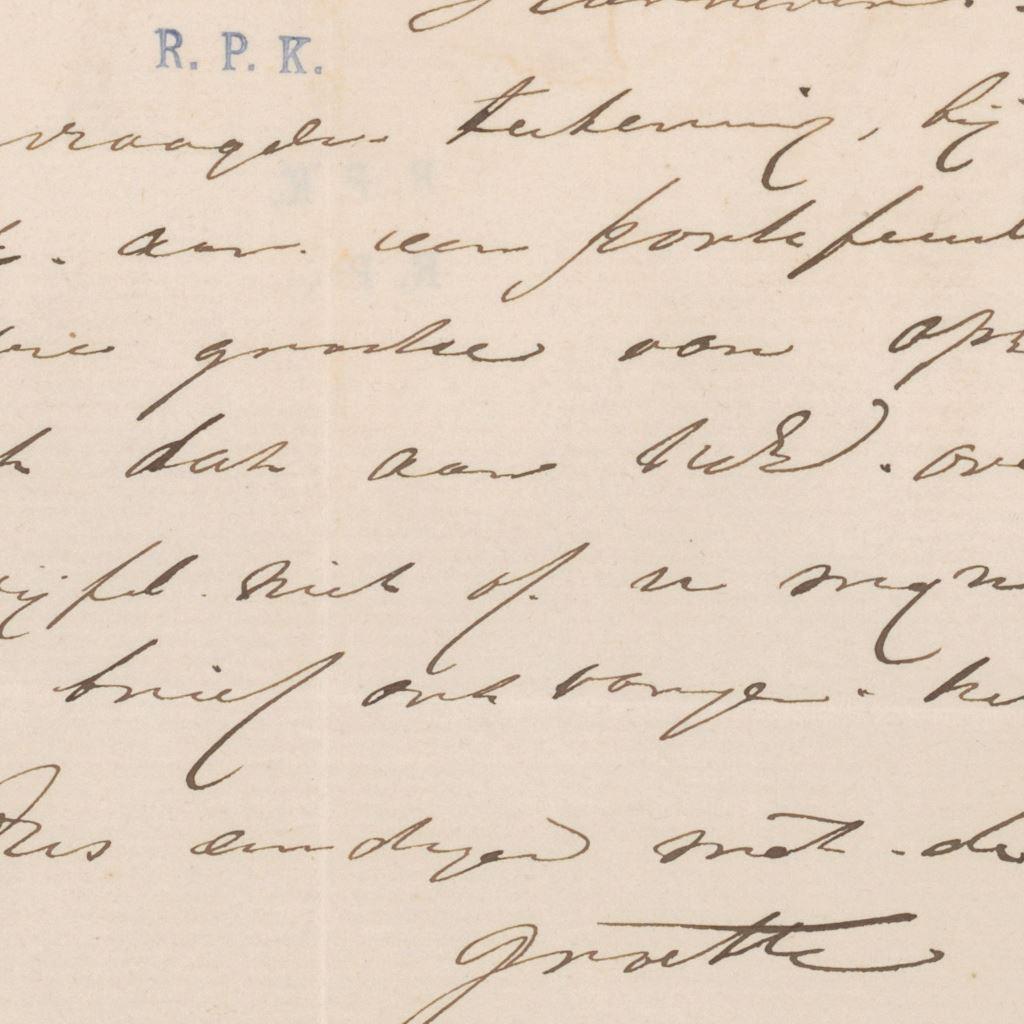 R. P. K.
vraagde teekening, bij
aan een portefeuil
grootte van op
dat aan UEd. ove
ijfel niet of u
brief ontvangen. het
Dus eindigend met de
groette